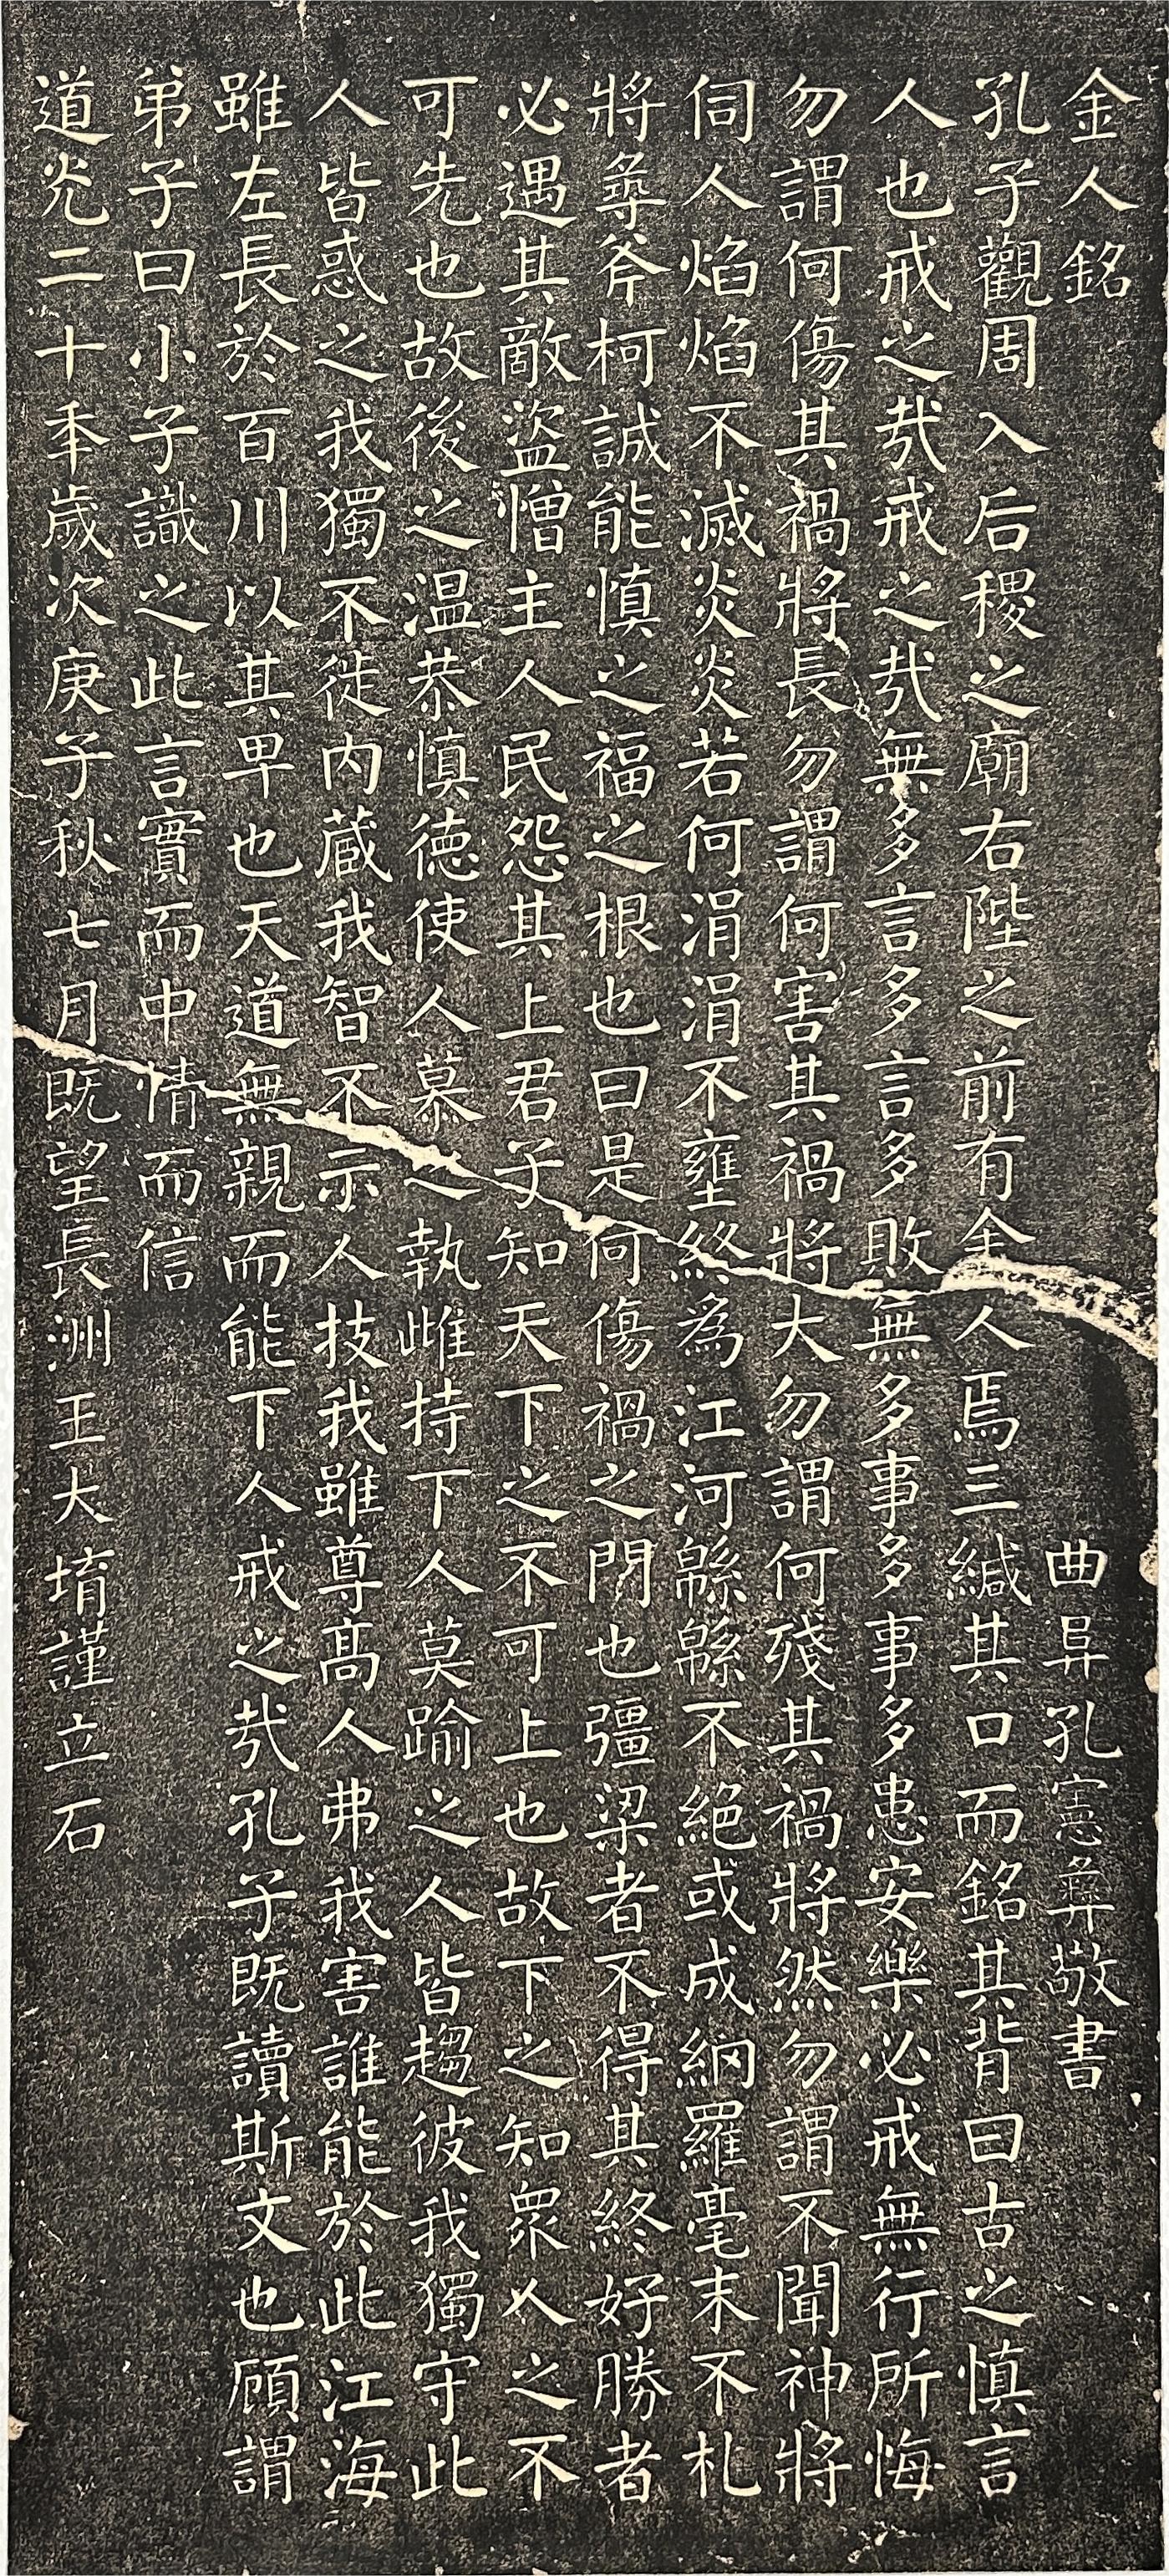 金人銘
曲阜孔憲彝敬書
孔子觀周入后稷之廟右陛之前有金人焉三緘其口而銘其背曰古之慎言
人也戒之哉戒之哉無多言多言多敗無多事多事多患安樂必戒無行所悔
勿謂何傷其禍將長勿謂何害其禍將大勿謂何殘其禍將然勿謂不聞神將
伺人焰焰不滅炎炎若何涓涓不壅終爲江河緜緜不絕或成網羅毫末不札
將尋斧柯誠能慎之福之根也曰是何傷禍之門也彊梁者不得其終好勝者
必遇其敵盜憎主人民怨其上君子知天下之不可上也故下之知眾人之不
可先也故後之温恭慎德使人慕之執雌持下人莫踰之人皆趨彼我獨守此
人皆惑之我獨不徙内藏我智不示人技我雖尊高人弗我害誰能於此江海
雖左長於百川以其卑也天道無親而能下人戒之哉孔子既讀斯文也顧謂
弟子曰小子識之此言實而中情而信
道光二十年歲次庚子秋七月既望長洲王大堉謹立石